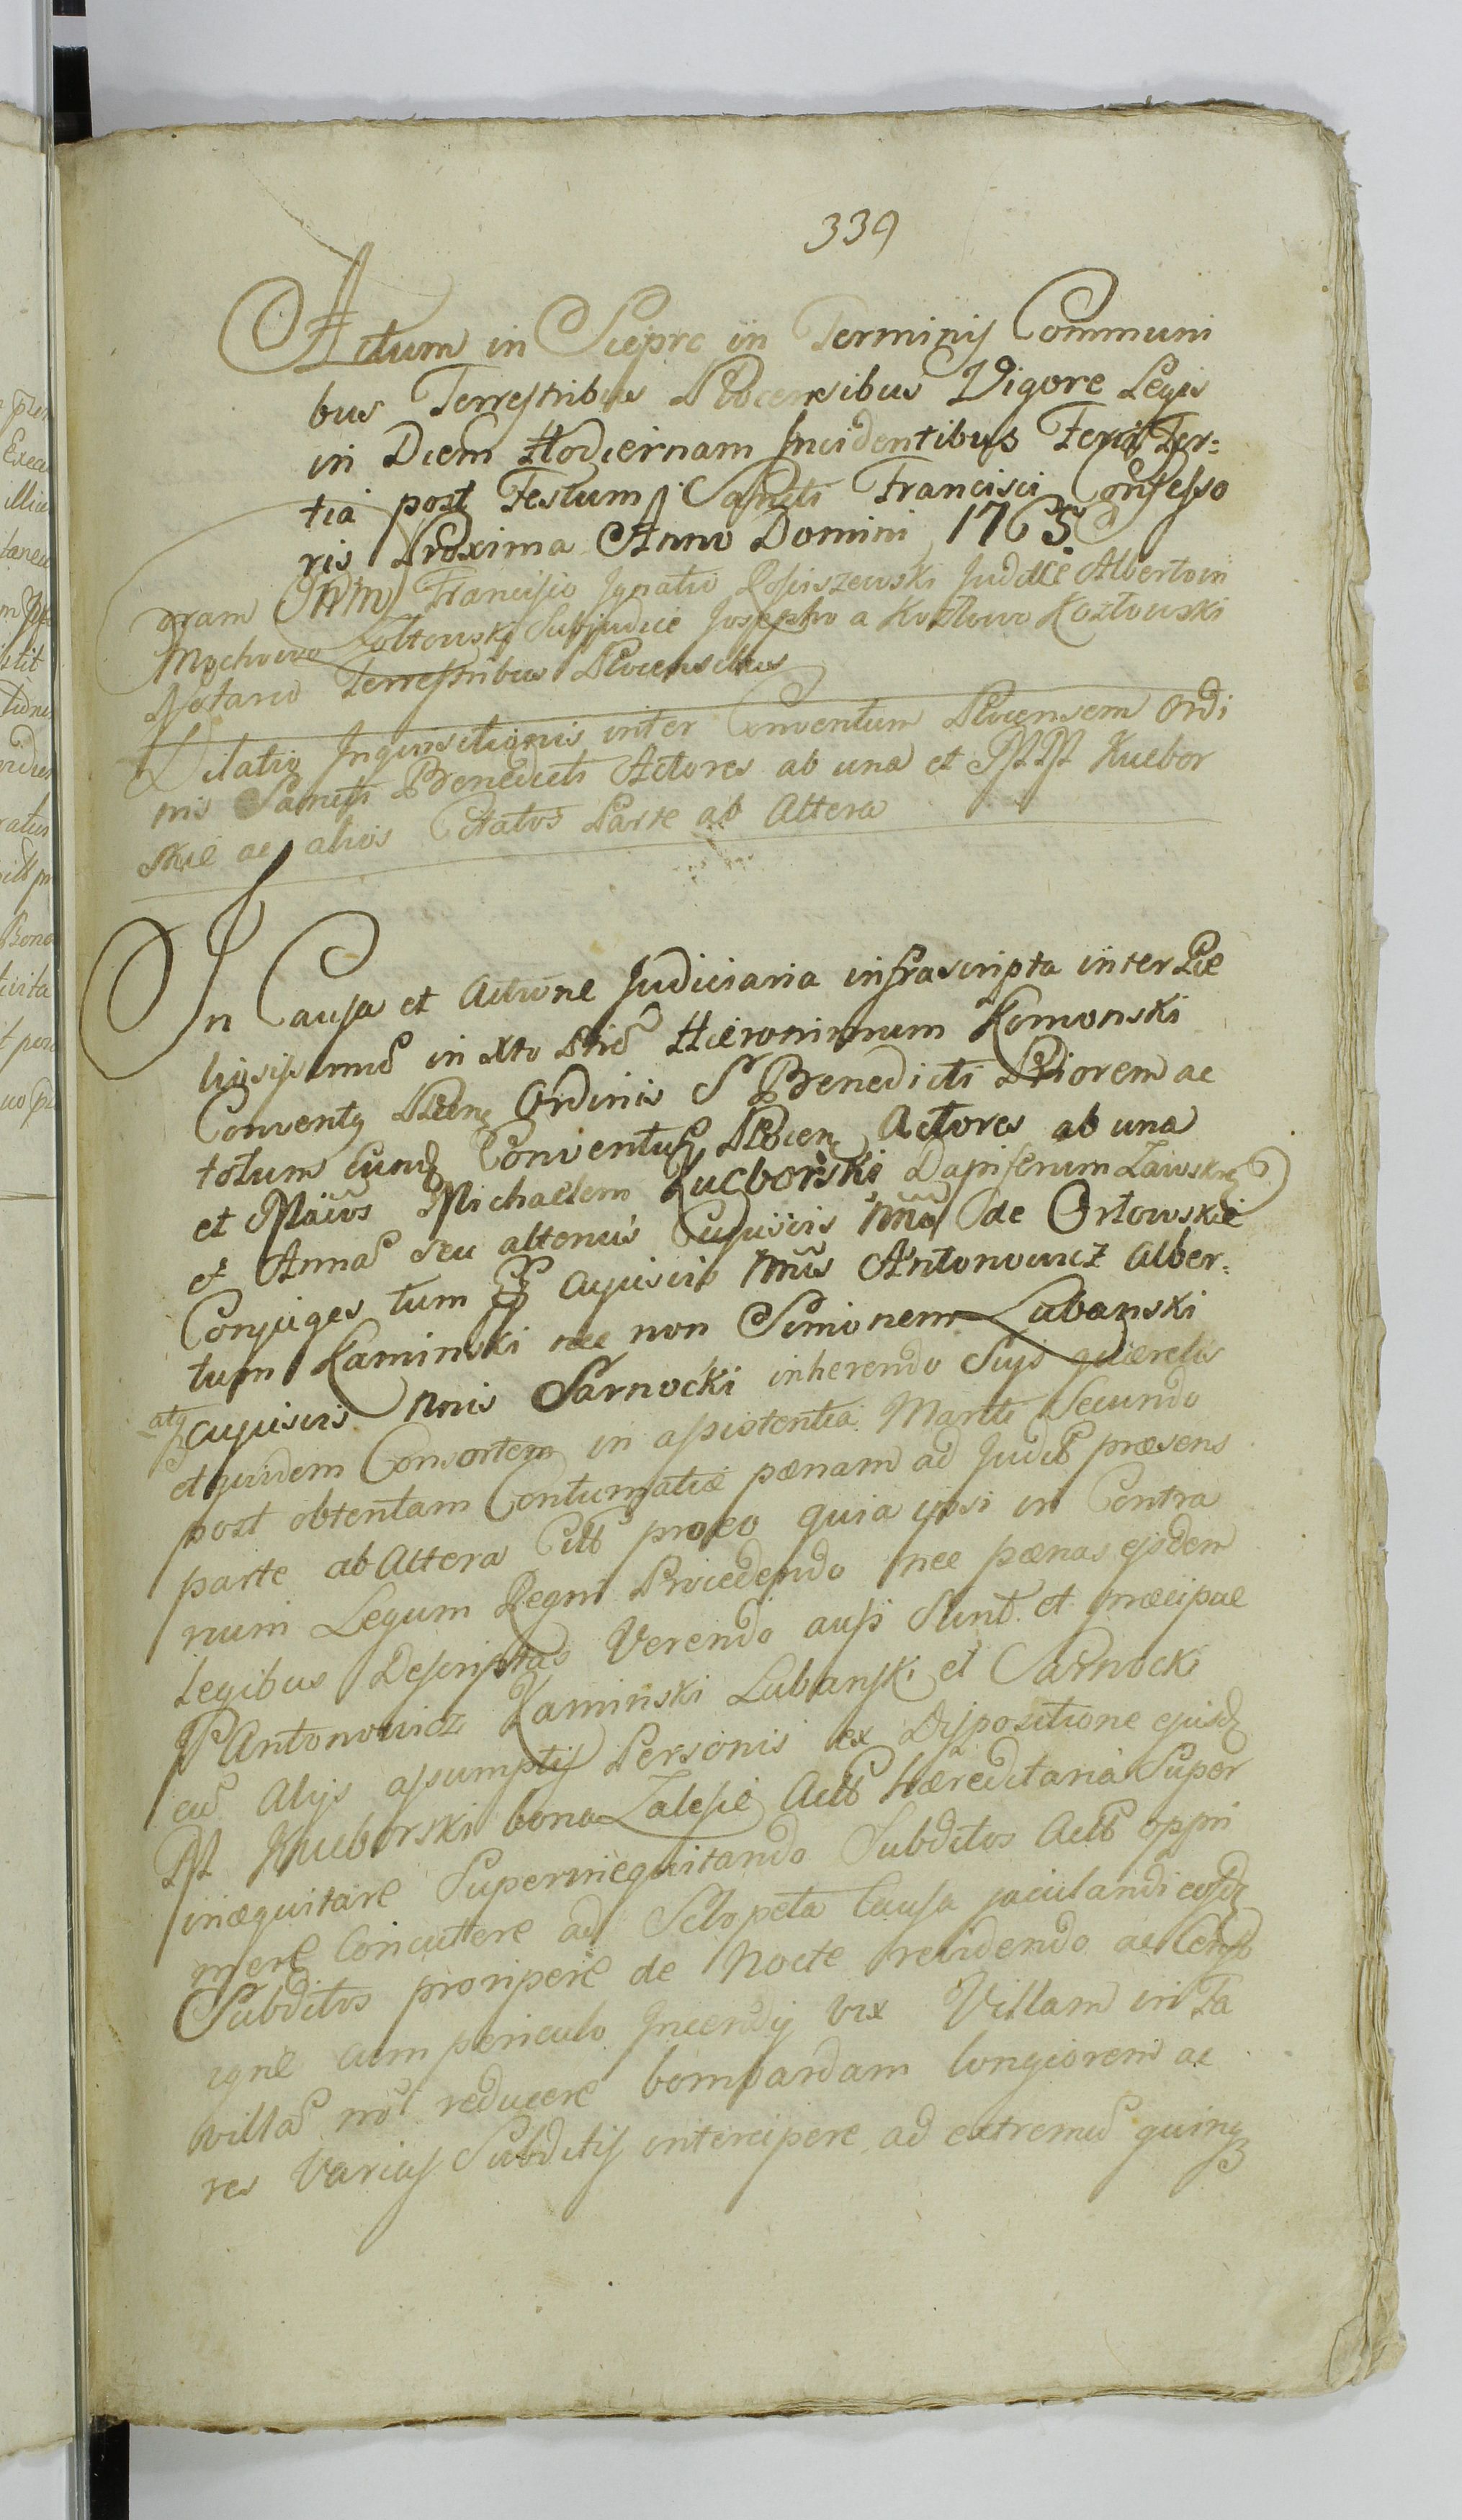 339
Actum in Sieprc in Terminis Communi
bus Terrestribus Plocensibus Vigore Legis
in Diem Hodiernam Incidentibus Feria Ter:
tia post Festum Sancti Francisci Confesso
ris Proxima Anno Domini 1765
oram MM Francisco Ignatio Rosciszewski Judice Alberto in
Mochowo Zołtowski Subjudice Josepho a Kozłowo Kozłowski
Notario Terrestribus Plocensibus
Dilatio Inquisitionis inter Conventum Plocensem Ordi
nis Sancti Benedicti Actores ab una et MM Kucbor
skie ac alios Citatos Parte ab Altera
In Causa et Actione Judiciaria infrascripta inter Re
ligiosissimũ in Xto Prẽ Hieronimum Komonski
Conventq Plocen Ordinis S Benedicti Priorem ac
totum eundq Conventũ Plocen Actores ab una
et Mãcos Michaelem Kucborski Dapiferum Zawskrz
et Annã seu alterius Cujusvis nnis de Orłowskie
Conjuges tum cujusvis nnis Antonowicz Alber:
tum Kaminski nec non Simionem Lubanski
atq cujusvis nnis Sarnocki inherendo Suis quærelis
et quidem Consortem in assistentia Mariti Secundo
post obtentam Contumatiæ pænam ad Judicˢ præsens
parte ab Altera Citt pro eo quia ipsi in Contra
rium Legum Regni Procedendo nec pænas ejsdem
Legibus Descriptas Verendo ausi Sunt et præcipue
P Antonowicz Kaminski Lubanski et Sarnocki
cũ Alijs assumptis Personis ex Dispositione ejusdq
M Kucborski bona Zalesie Actt hæreditaria Super
inæquitare Superinæquitando Subditos Actt oppri
mere Concuttere ad Sclopeta Causa jaculandi eosdq
Subditos proripere de Nocte redidendo ac Censo
igne cum periculo Incendij vix Villam in Fa
villã nõ reducere bombardam longiorem ac
res Varias Subditis intercipere ad extremũ quinq